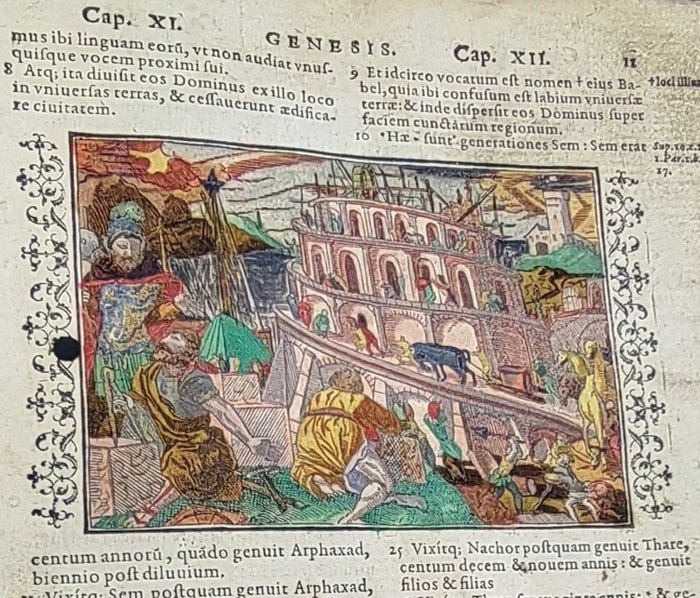 Cap. XI.
GENESIS.
Cap. XII.
11
mus ibi linguam eorũ, vt non audiat vnuſ-
quiſque vocem proximi ſui.
8 Atq; ita diuiſit eos Dominus ex illo loco
in vniuerſas terras, & ceſſauerunt ædifica-
re ciuitatem.
9 Et idcirco vocatum eſt nomen † eius Ba-
bel, quia ibi confuſum eſt labium vniuerſæ
terræ: & inde diſperſit eos Dominus ſuper
faciem cunctarum regionum.
10 * Hæ ſunt generationes Sem: Sem erat
† loci illius
Sup. 10. c.
1. Par. 1. b.
17.
centum annorũ, quãdo genuit Arphaxad,
biennio poſt diluuium.
Vixitq; Sem poſtquam genuit Arphaxad,
25 Vixitq; Nachor poſtquam genuit Thare,
centum decem & nouem annis: & genuit
filios & filias